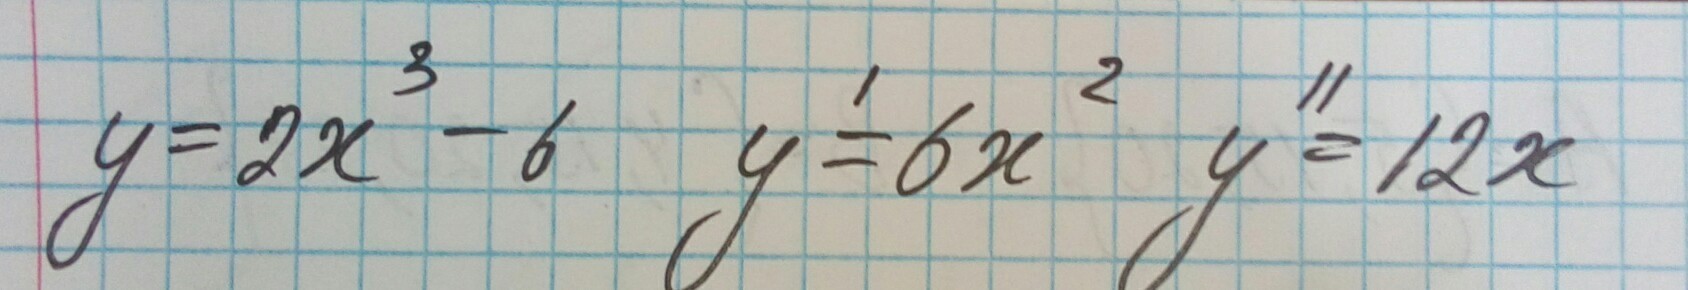 y = 2x³ - 6 y' = 6x² y'' = 12x